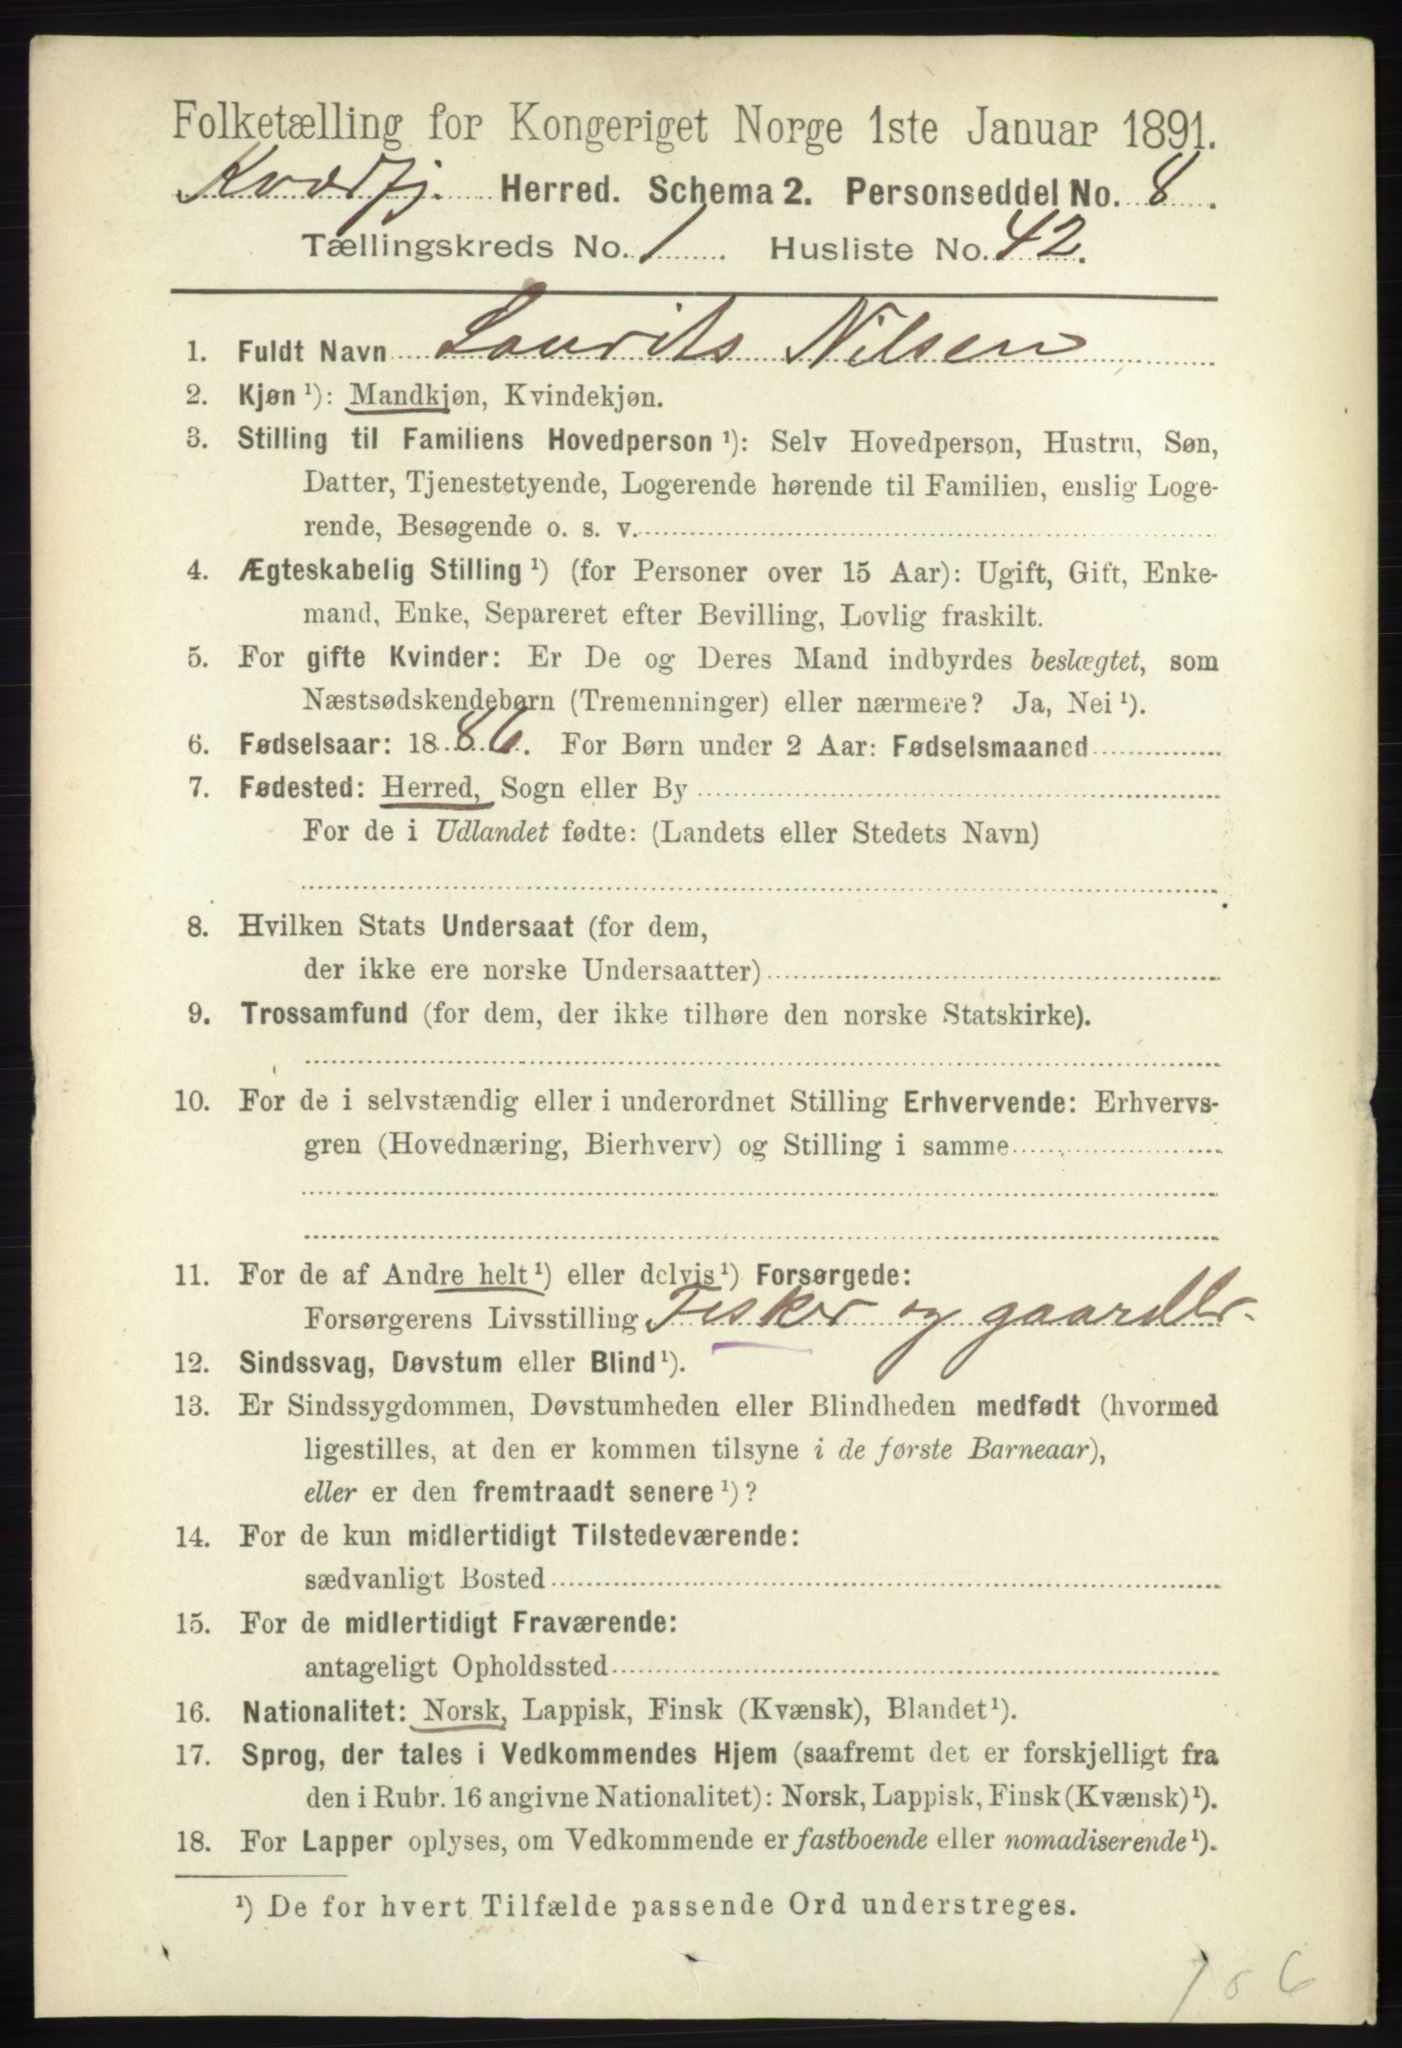 Folketælling for Kongeriget Norge 1ste Januar 1891.
Kvædfj. Herred. Schema 2. Personseddel No. 8.
Tællingskreds No. 1. Husliste No. 42.
1. Fuldt Navn Laurits Nilsen
2. Kjøn ¹): Mandkjøn, Kvindekjøn.
3. Stilling til Familiens Hovedperson ¹): Selv Hovedperson, Hustru, Søn,
Datter, Tjenestetyende, Logerende hørende til Familien, enslig Loge-
rende, Besøgende o. s. v.
4. Ægteskabelig Stilling ¹) (for Personer over 15 Aar): Ugift, Gift, Enke-
mand, Enke, Separeret efter Bevilling, Lovlig fraskilt.
5. For gifte Kvinder: Er De og Deres Mand indbyrdes beslægtet, som
Næstsødskendebørn (Tremenninger) eller nærmere? Ja, Nei ¹).
6. Fødselsaar: 1886. For Børn under 2 Aar: Fødselsmaaned
7. Fødested: Herred, Sogn eller By
For de i Udlandet fødte: (Landets eller Stedets Navn)
8. Hvilken Stats Undersaat (for dem,
der ikke ere norske Undersaatter)
9. Trossamfund (for dem, der ikke tilhøre den norske Statskirke).
10. For de i selvstændig eller i underordnet Stilling Erhvervende: Erhvervs-
gren (Hovednæring, Bierhverv) og Stilling i samme
11. For de af Andre helt ¹) eller delvis ¹) Forsørgede:
Forsørgerens Livsstilling Fisker og gaardbr.
12. Sindssvag, Døvstum eller Blind ¹).
13. Er Sindssygdommen, Døvstumheden eller Blindheden medfødt (hvormed
ligestilles, at den er kommen tilsyne i de første Barneaar),
eller er den fremtraadt senere ¹)?
14. For de kun midlertidigt Tilstedeværende:
sædvanligt Bosted
15. For de midlertidigt Fraværende:
antageligt Opholdssted
16. Nationalitet: Norsk, Lappisk, Finsk (Kvænsk), Blandet ¹).
17. Sprog, der tales i Vedkommendes Hjem (saafremt det er forskjelligt fra
den i Rubr. 16 angivne Nationalitet): Norsk, Lappisk, Finsk (Kvænsk) ¹).
18. For Lapper oplyses, om Vedkommende er fastboende eller nomadiserende ¹).
¹) De for hvert Tilfælde passende Ord understreges.
706